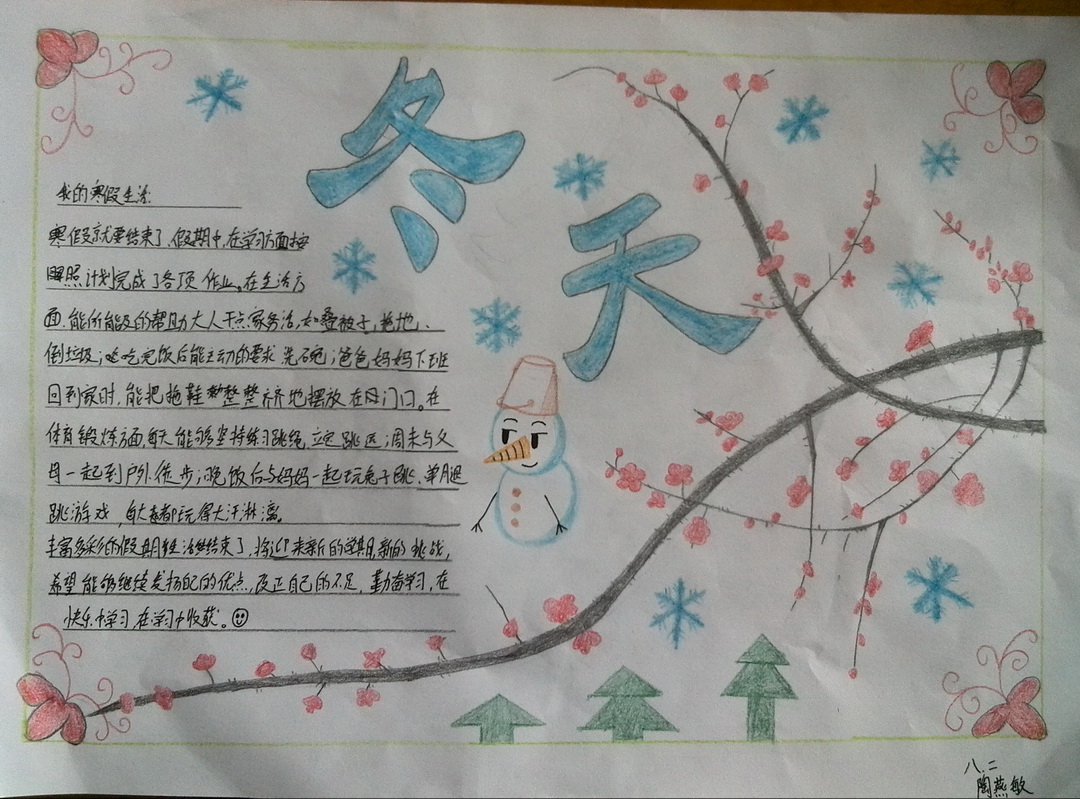 冬天
我的寒假生活:
寒假就要结束了,假期中,在学习方面按
照计划完成了各项作业。在生活方
面,能所能及的帮助大人干点家务活,如叠被子,拖地、
倒垃圾;吃完饭后能主动的要求洗碗;爸爸妈妈下班
回到家时,能把拖鞋整整齐齐地摆放在门口。在
体育锻炼方面,每天能够坚持练习跳绳,立定跳远;周末与父
母一起到户外徒步;晚饭后与妈妈一起玩兔子跳、单月退
跳游戏,每大都玩得大汗淋漓。
丰富多彩的假期生活结束了,将迎来新的学期,新的挑战,
希望能够继续发扬自己的优点,改正自己的不足,勤奋学习,在
快乐中学习,在学习中收获。
八.二
陶燕敏